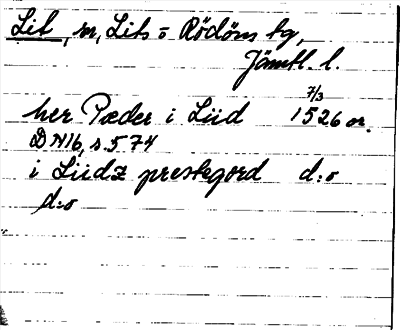 Lit, sn, Lits o Rödöns tg,
Jämtl. l.
7/3
her Pæder i Liid 1526 or.
DN 16, s. 574
i Liidz prestegord d:o
d:o